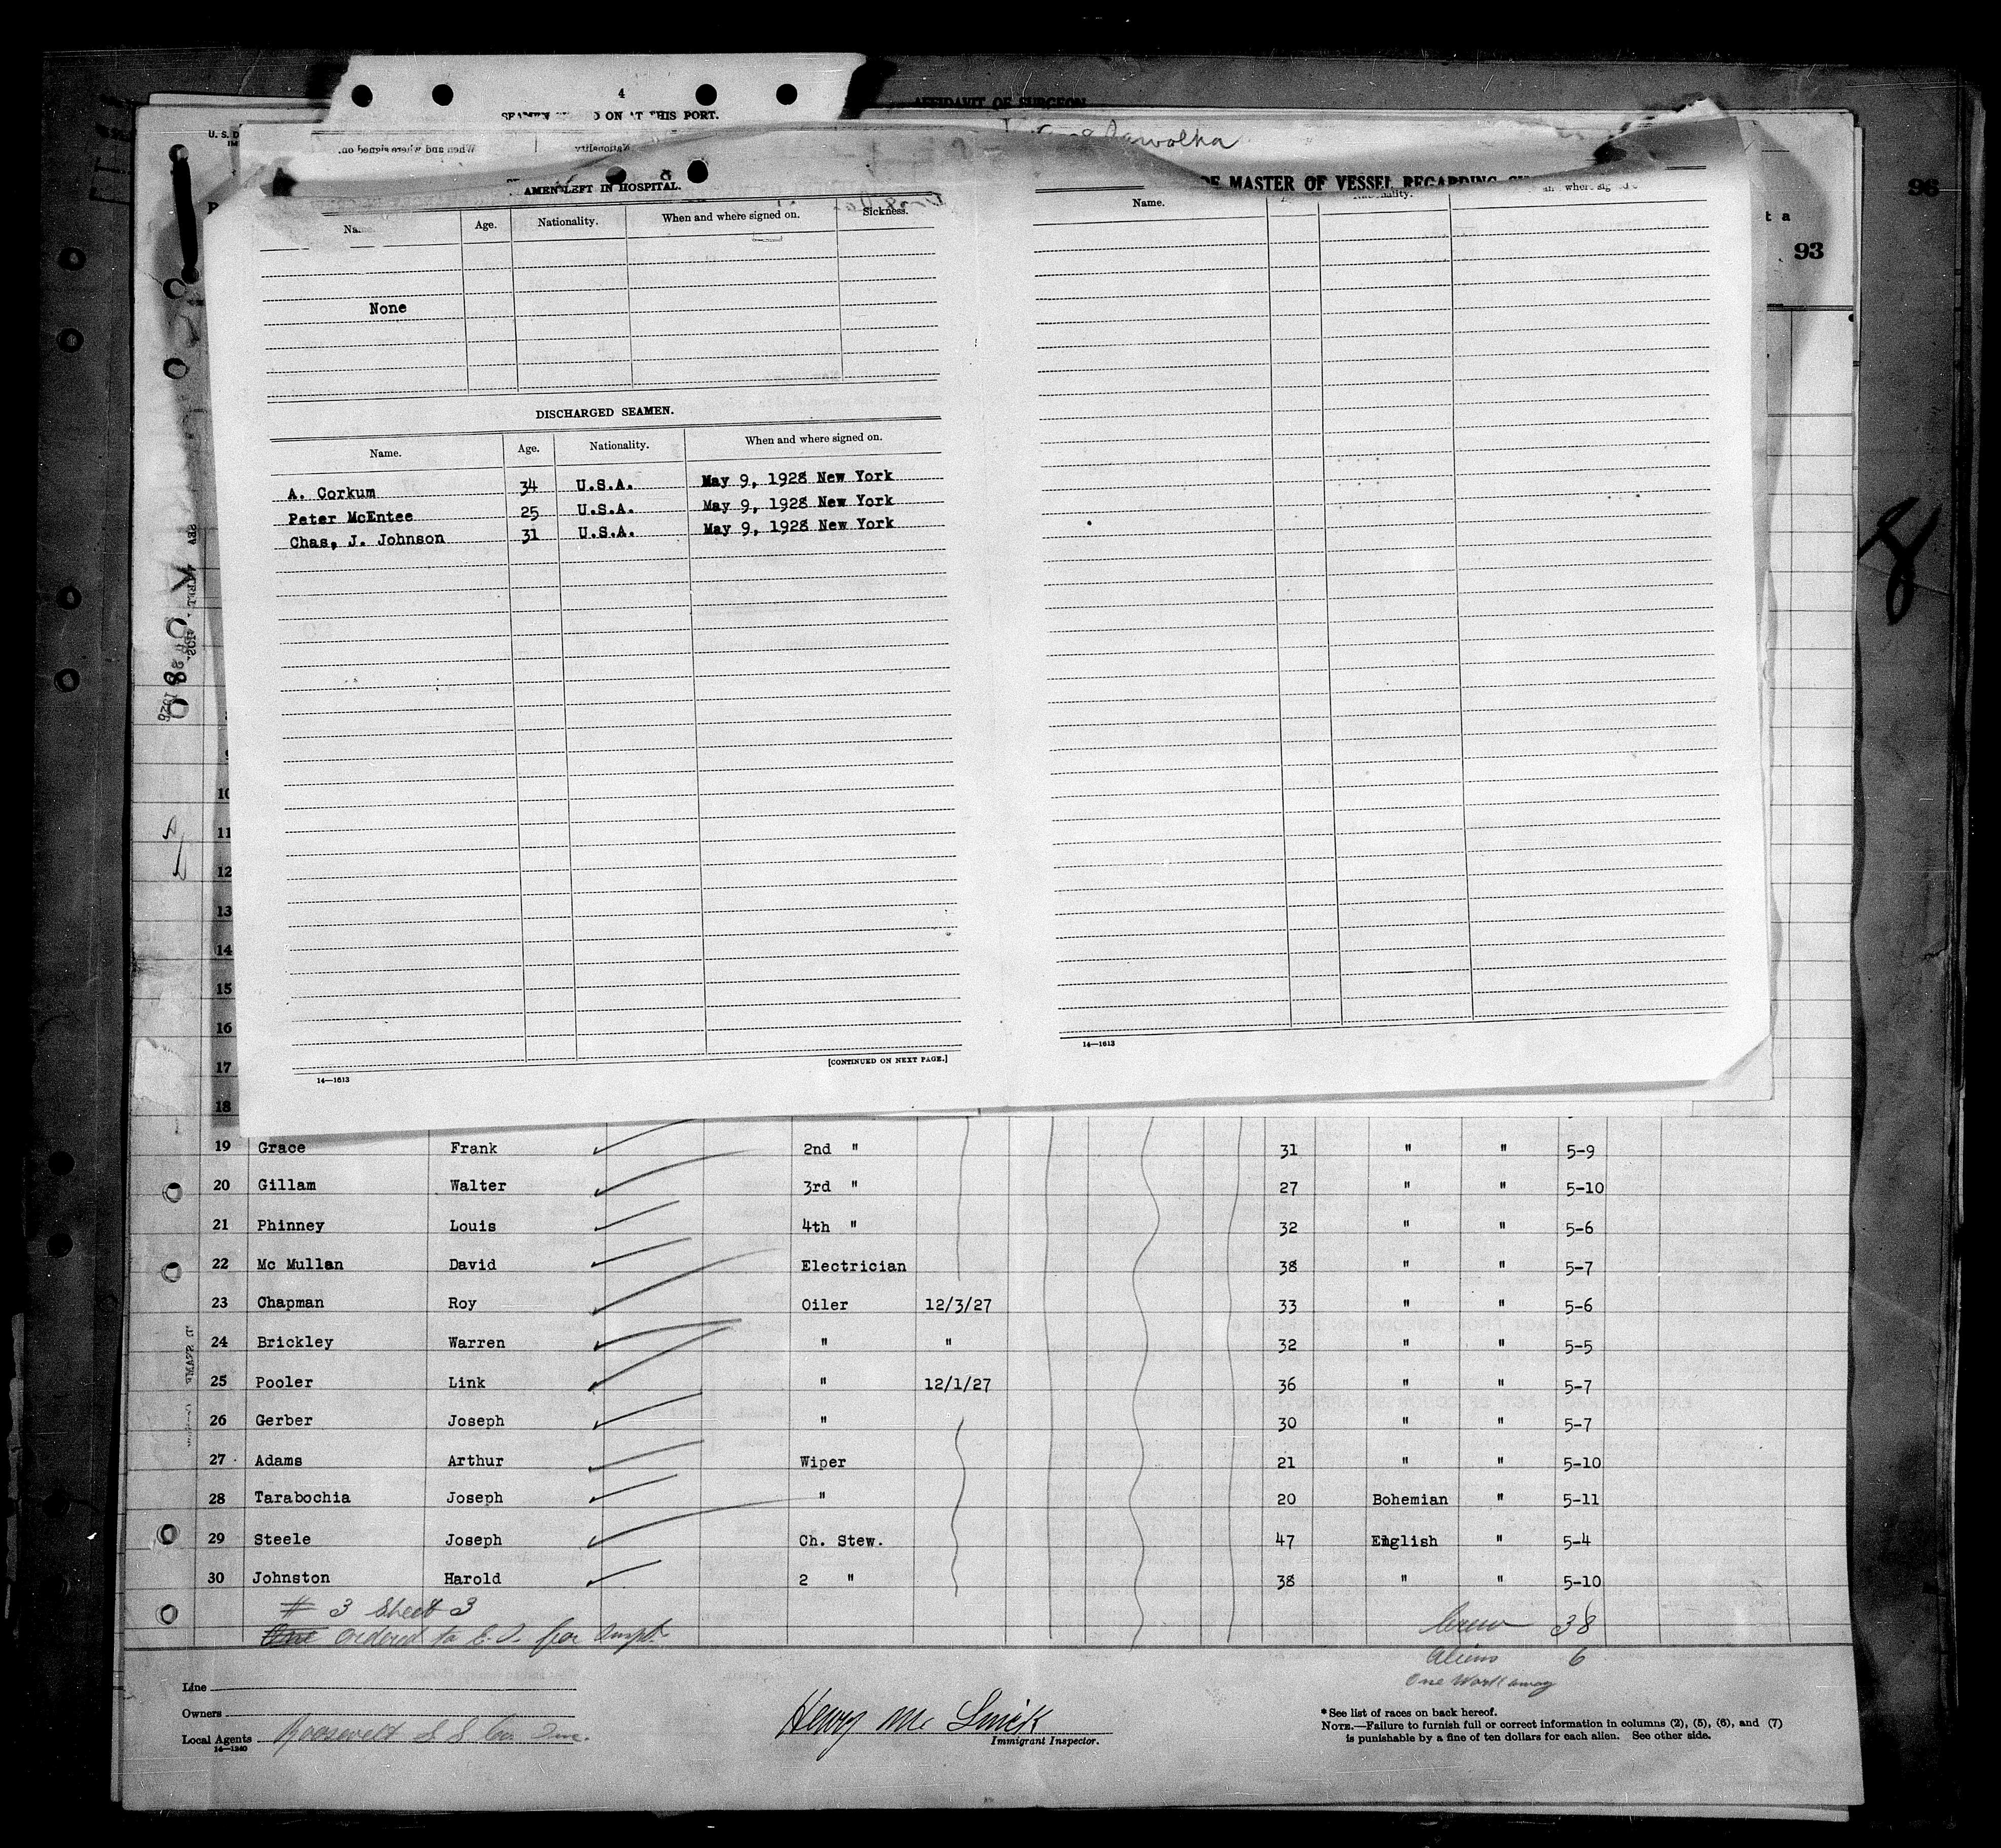 4
ON AT THIS PORT.
AFFIDAVIT OF SURGEON
U. S. D
When and where signed on.
Nationality
96
93
OF MASTER OF VESSEL REGARDING
SEAMEN LEFT IN HOSPITAL.
Name. Age. Nationality. When and where signed on. Sickness.
None
DISCHARGED SEAMEN.
Name. Age. Nationality. When and where signed on.
A. Corkum 34 U.S.A. May 9, 1928 New York
Peter McEntee 25 U.S.A. May 9, 1928 New York
Chas, J. Johnson 31 U.S.A. May 9, 1928 New York
[CONTINUED ON NEXT PAGE.]
14—1613
Name. Nationality.
14—1613
10
11
12
13
14
15
16
17
18
19 Grace Frank 2nd " 31 " " 5-9
20 Gillam Walter 3rd " 27 " " 5-10
21 Phinney Louis 4th " 32 " " 5-6
22 Mc Mullan David Electrician 38 " " 5-7
23 Chapman Roy Oiler 12/3/27 33 " " 5-6
24 Brickley Warren " " 32 " " 5-5
25 Pooler Link " 12/1/27 36 " " 5-7
26 Gerber Joseph " 30 " " 5-7
27 Adams Arthur Wiper 21 " " 5-10
28 Tarabochia Joseph " 20 Bohemian " 5-11
29 Steele Joseph Ch. Stew. 47 English " 5-4
30 Johnston Harold 2 " 38 " " 5-10
# 3 Sheet 3
One ordered to E. I. for
Crew 38
Aliens 6
One Workaway
Line
Owners
Local Agents Roosevelt S S Co. Inc.
14—1240
Henry Mc
Immigrant Inspector.
* See list of races on back hereof.
NOTE.—Failure to furnish full or correct information in columns (2), (5), (6), and (7)
is punishable by a fine of ten dollars for each alien. See other side.